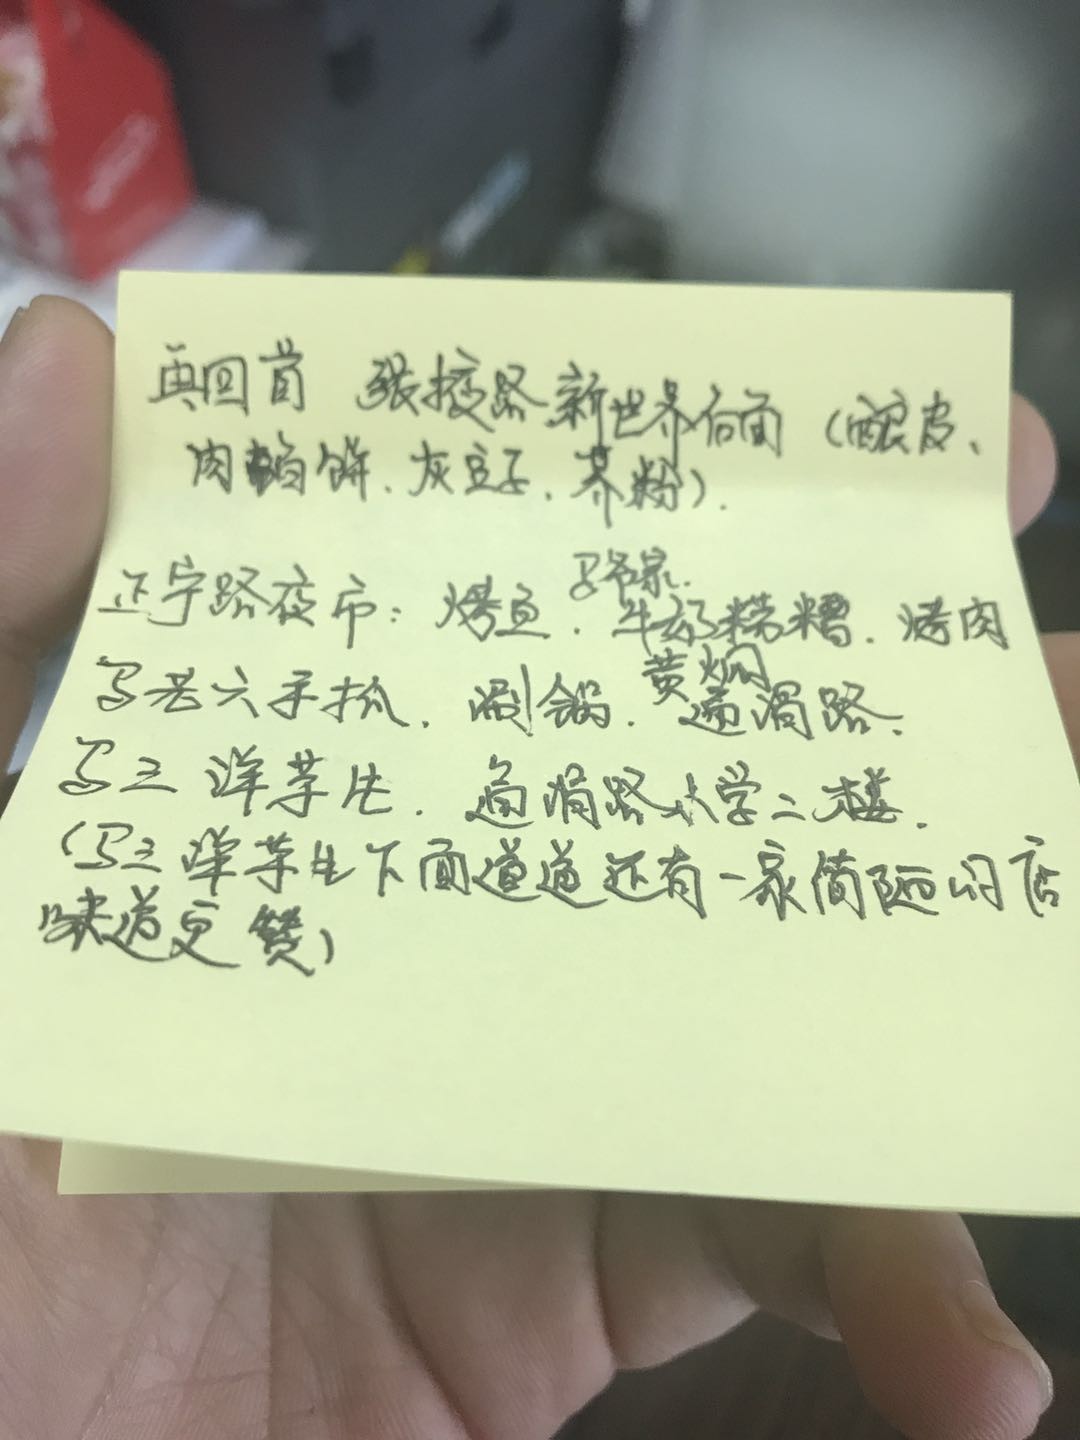 再回首 张掖路新世界后面（酿皮、
肉馅饼、灰豆子、荞粉）.
正宁路夜市：烤鱼、牛奶醪糟、烤肉
马爷家.
马老六手抓、涮锅、通渭路.
黄焖
马三洋芋片、通渭路大学二楼.
（马三洋芋片下面道道还有一家简陋的店
味道更赞）